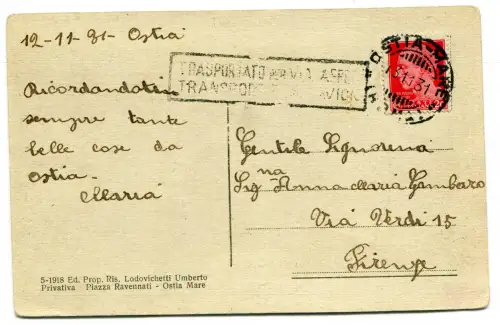 12-11-31- Ostia
TRASPORTATO PER VIA AEREA
TRANSPORT AVION
OSTIA-MARE
Ricordandoti
sempre tante
belle cose da
Ostia-
Maria
Gentile Signorina
na
Sig Anna Maria Gambaro
Via Verdi 15
Firenze
5-1918 Ed. Prop. Ris. Lodovichetti Umberto
Privativa Piazza Ravennati - Ostia Mare